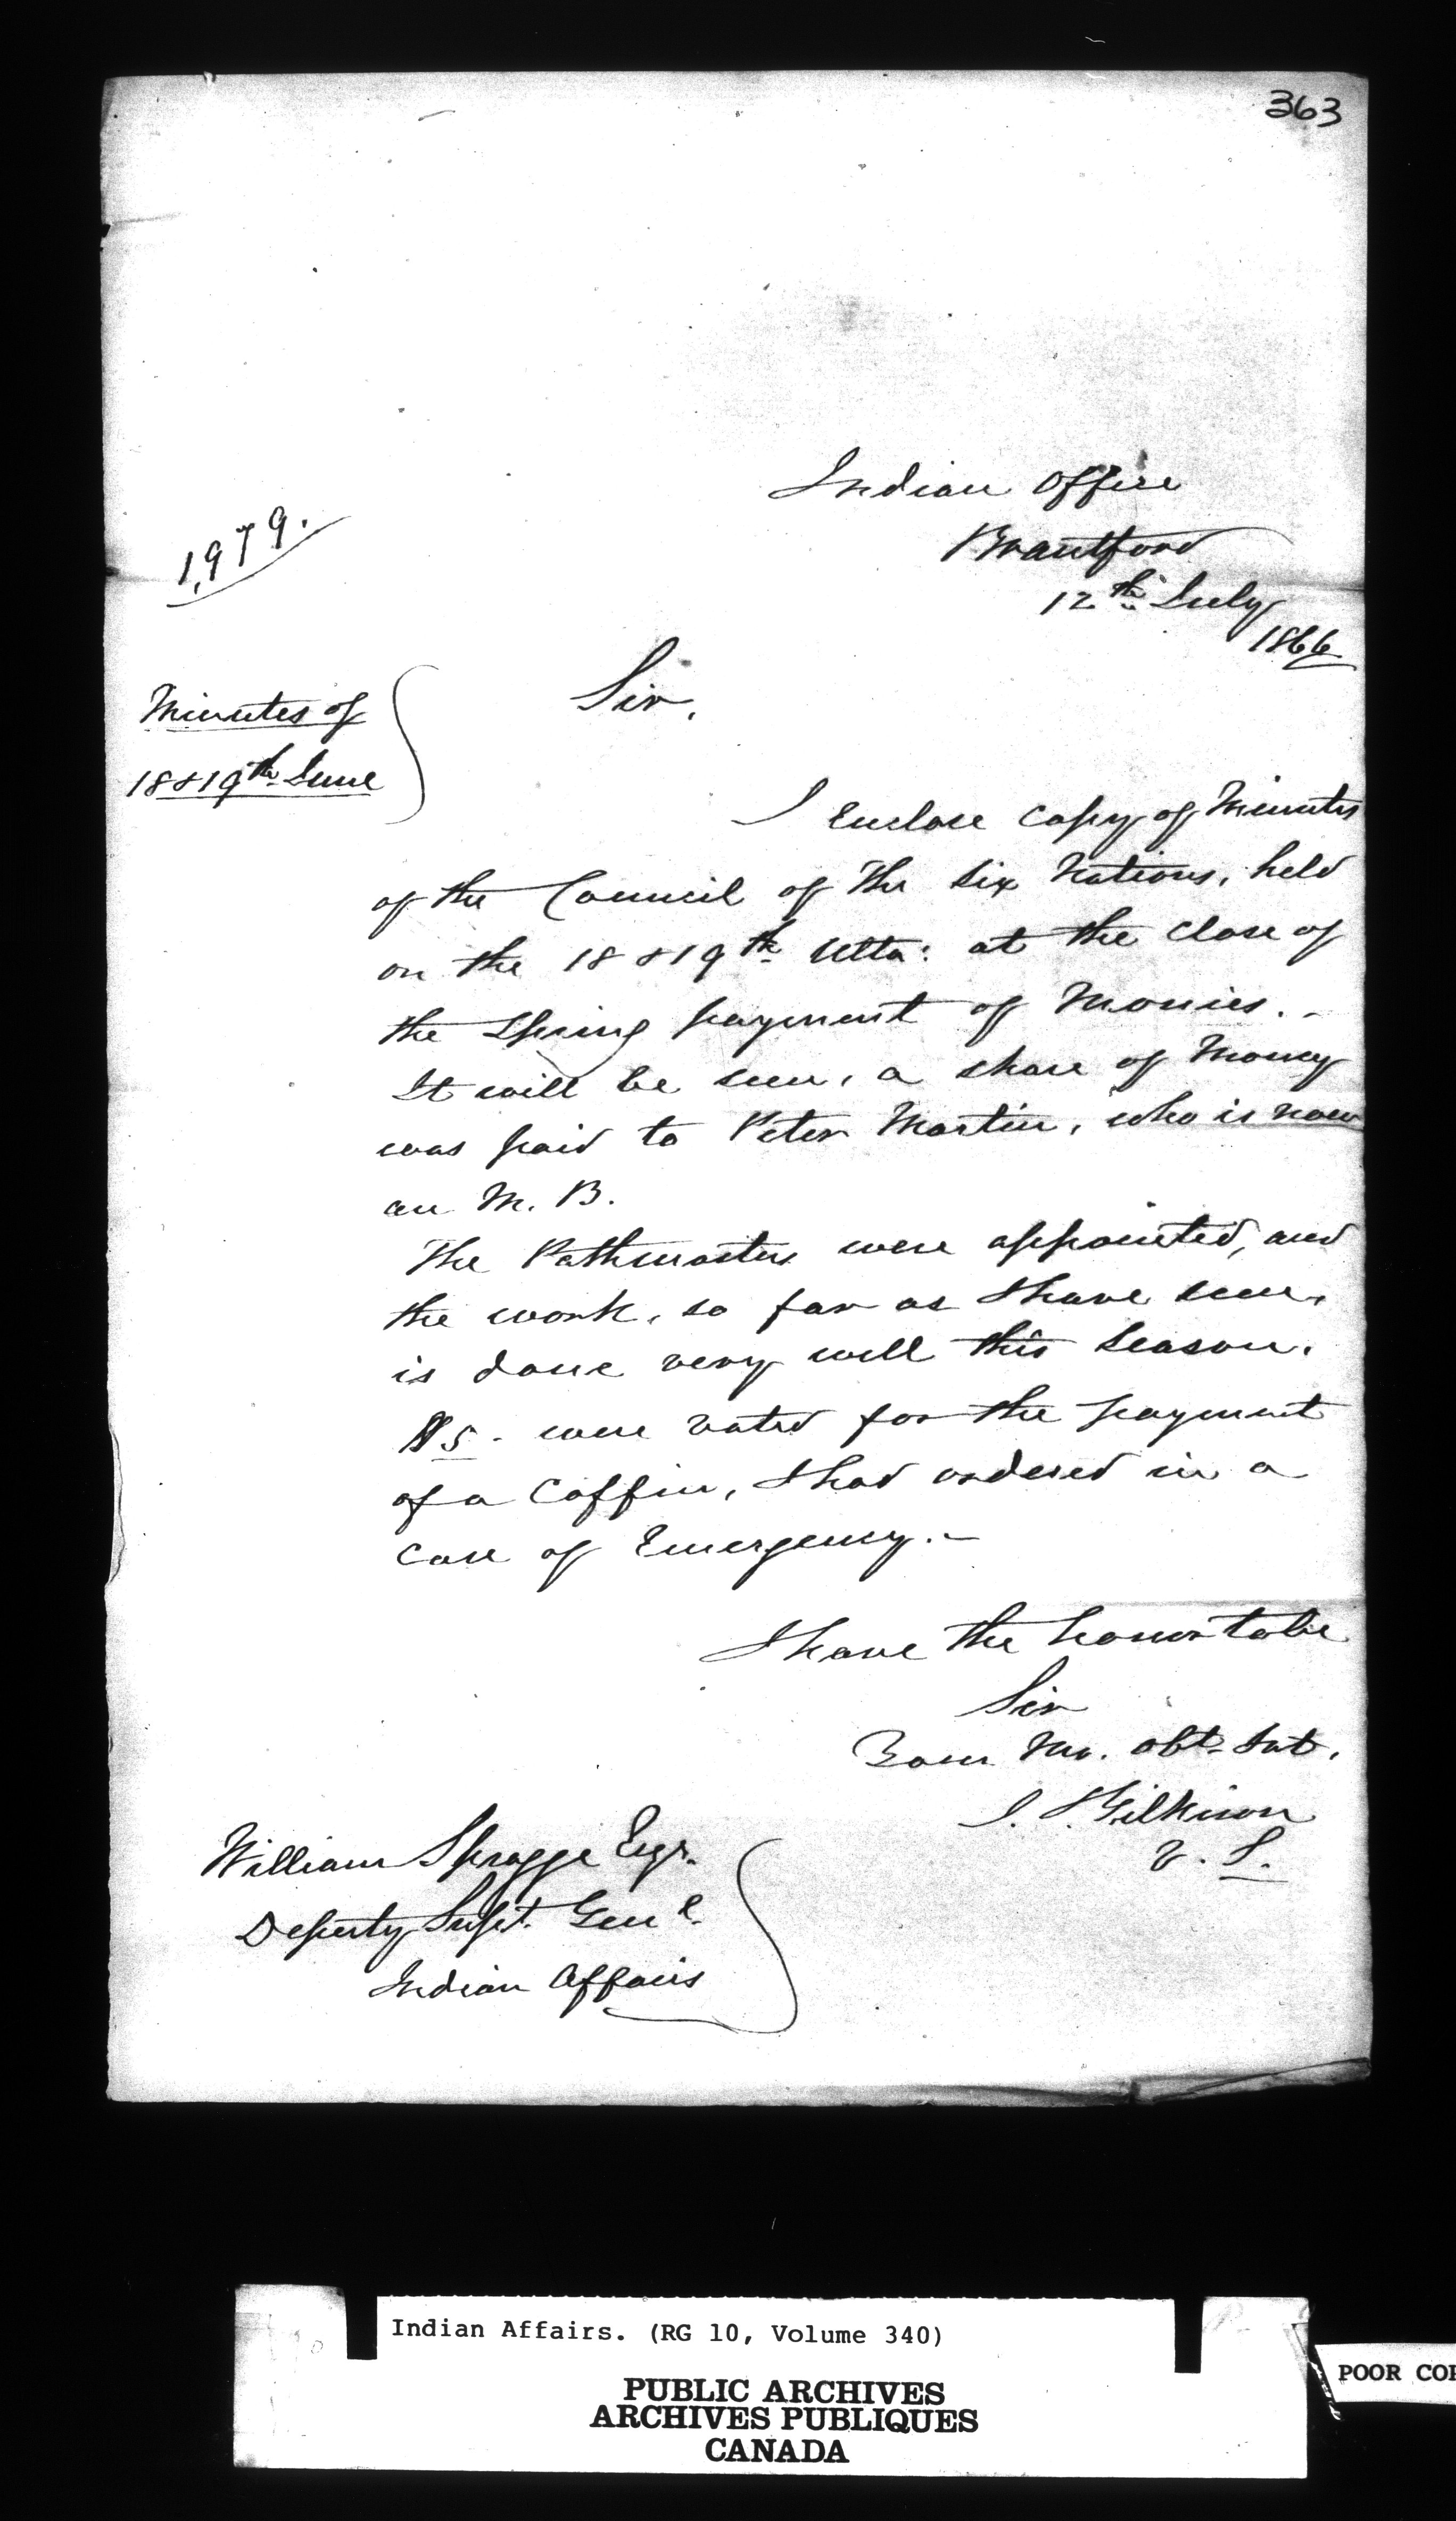 363
Indian Office
Brantford
12th July
1866
1,979.
Minutes of
18 & 19th June
Sir,
I Enclose Copy of Minutes
of the Council of the Six Nations, held
on the 18 & 19th Ulto: at the Close of
the Spring payment of Monies. -
It will be seen, a share of Money
was paid to Peter Martin, who is now
an M. B.
The Pathmasters were appointed, and
the work, so far as I have seen,
is done very well this Season.
$5 - were voted for the payment
of a Coffin, I had ordered in a
Case of Emergency. -
I have the honor to be
Sir
Your Mo. Obt. Svt.
J. T. Gilkison
V. S.
William Spragge Esqr.
Deputy Supt. Genl.
Indian Affairs
Indian Affairs. (RG 10, Volume 340)
PUBLIC ARCHIVES
ARCHIVES PUBLIQUES
CANADA
POOR COP